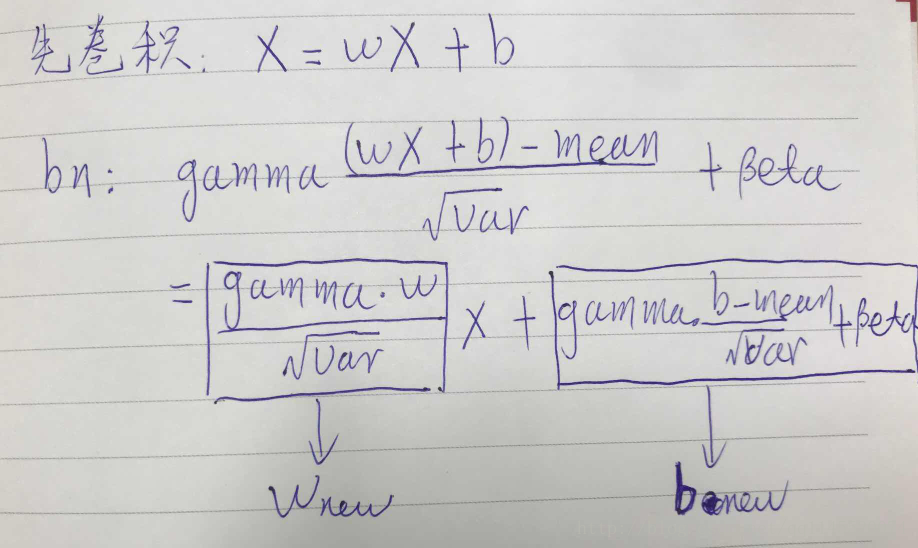 先卷积: X = wX + b
bn: gamma ((wX + b) - mean) / √var + βeta
= gamma·w / √var X + gamma· (b-mean) / √var + βeta
Wnew bnew